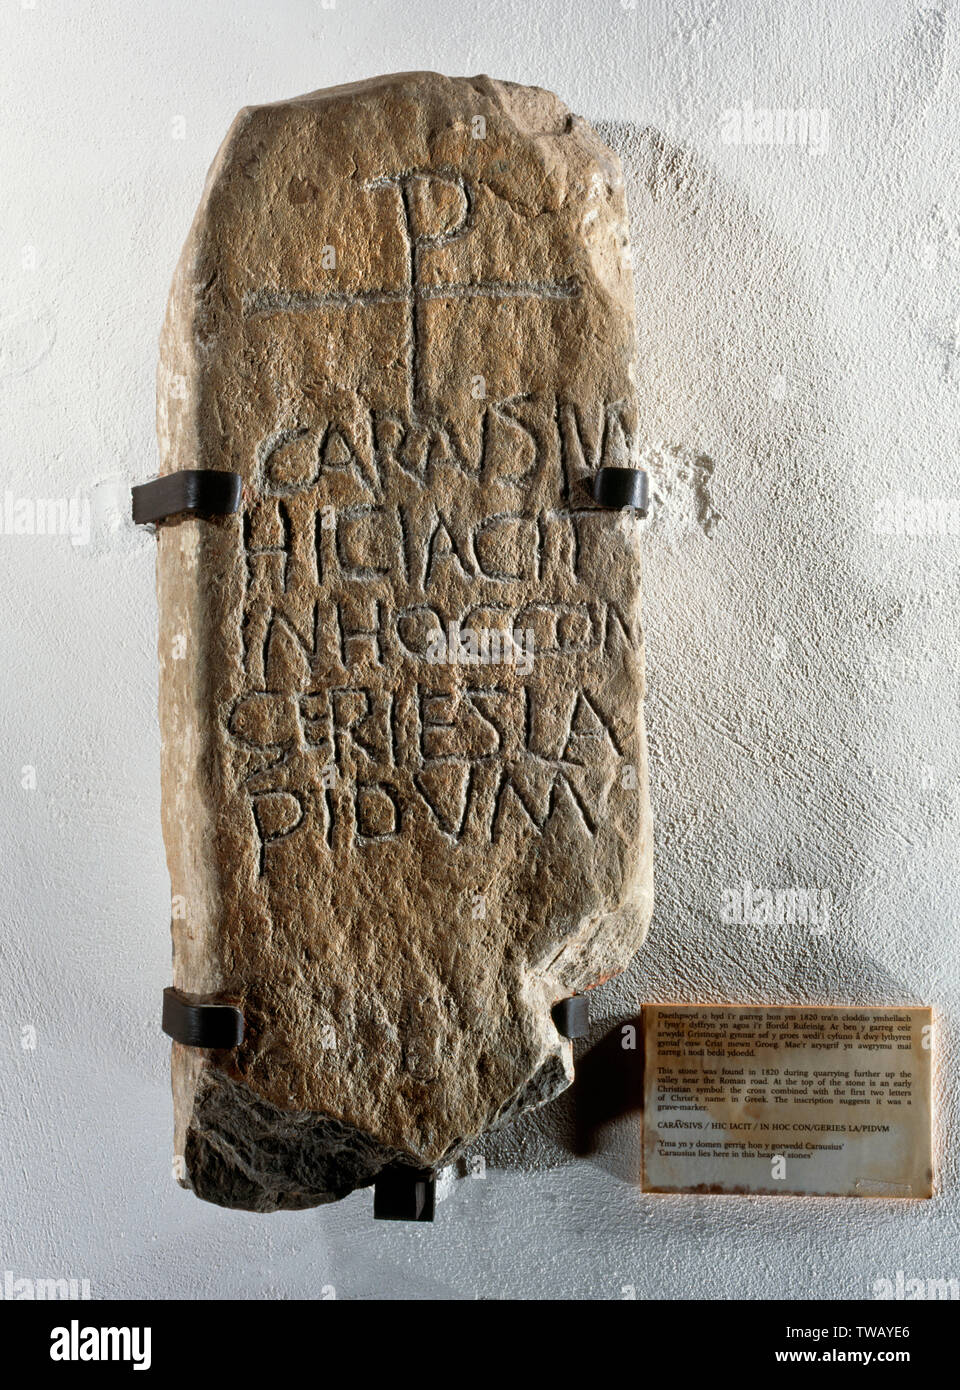 CARAVSIVS
HIC IACIT
IN HOC CON
GERIES LA
PIDVM
Daethpwyd o hyd i'r garreg hon ym 1820 tra'n cloddio ymhellach
i fyny'r dyffryn yn agos i'r ffordd Rufeinig. Ar ben y garreg ceir
arwydd Gristnogol gynnar sef y groes wedi'i cyfuno â dwy lythyren
gyntaf enw Crist mewn Groeg. Mae'r arysgrif yn awgrymu mai
carreg i nodi bedd ydoedd.
This stone was found in 1820 during quarrying further up the
valley near the Roman road. At the top of the stone is an early
Christian symbol: the cross combined with the first two letters
of Christ's name in Greek. The inscription suggests it was a
grave-marker.
CARAVSIVS / HIC IACIT / IN HOC CON/GERIES LA/PIDVM
'Yma yn y domen gerrig hon y gorwedd Carausius'
'Carausius lies here in this heap of stones'
alamy
Image ID: TWAYE6
www.alamy.com